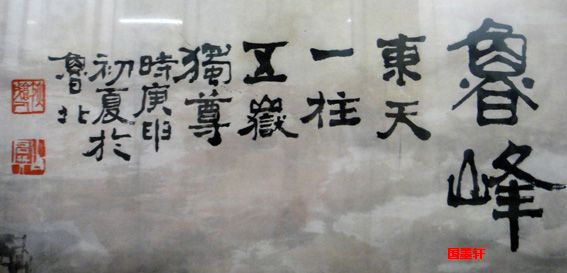 魯峰
東天
一柱
五嶽
獨尊
時庚申
初夏於
魯北
国墨轩